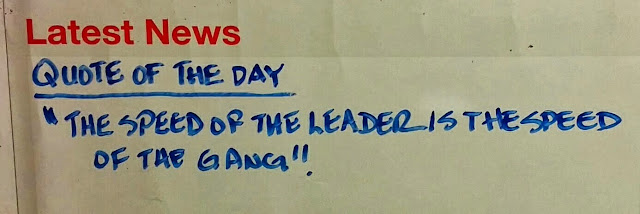 Latest News
QUOTE OF THE DAY
"THE SPEED OF THE LEADER IS THE SPEED
OF THE GANG"!